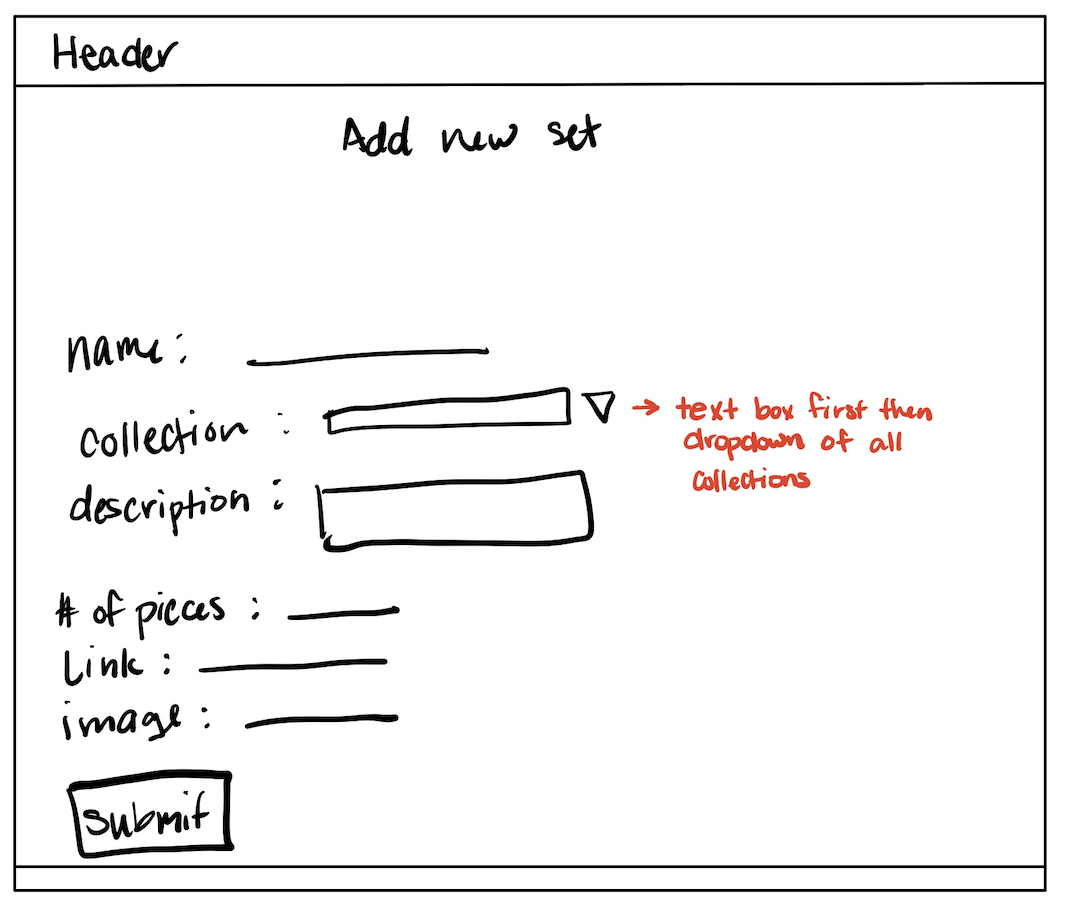 Header
Add new set
name:
collection :
→ text box first then
dropdown of all
collections
description :
# of pieces :
Link :
image :
submit